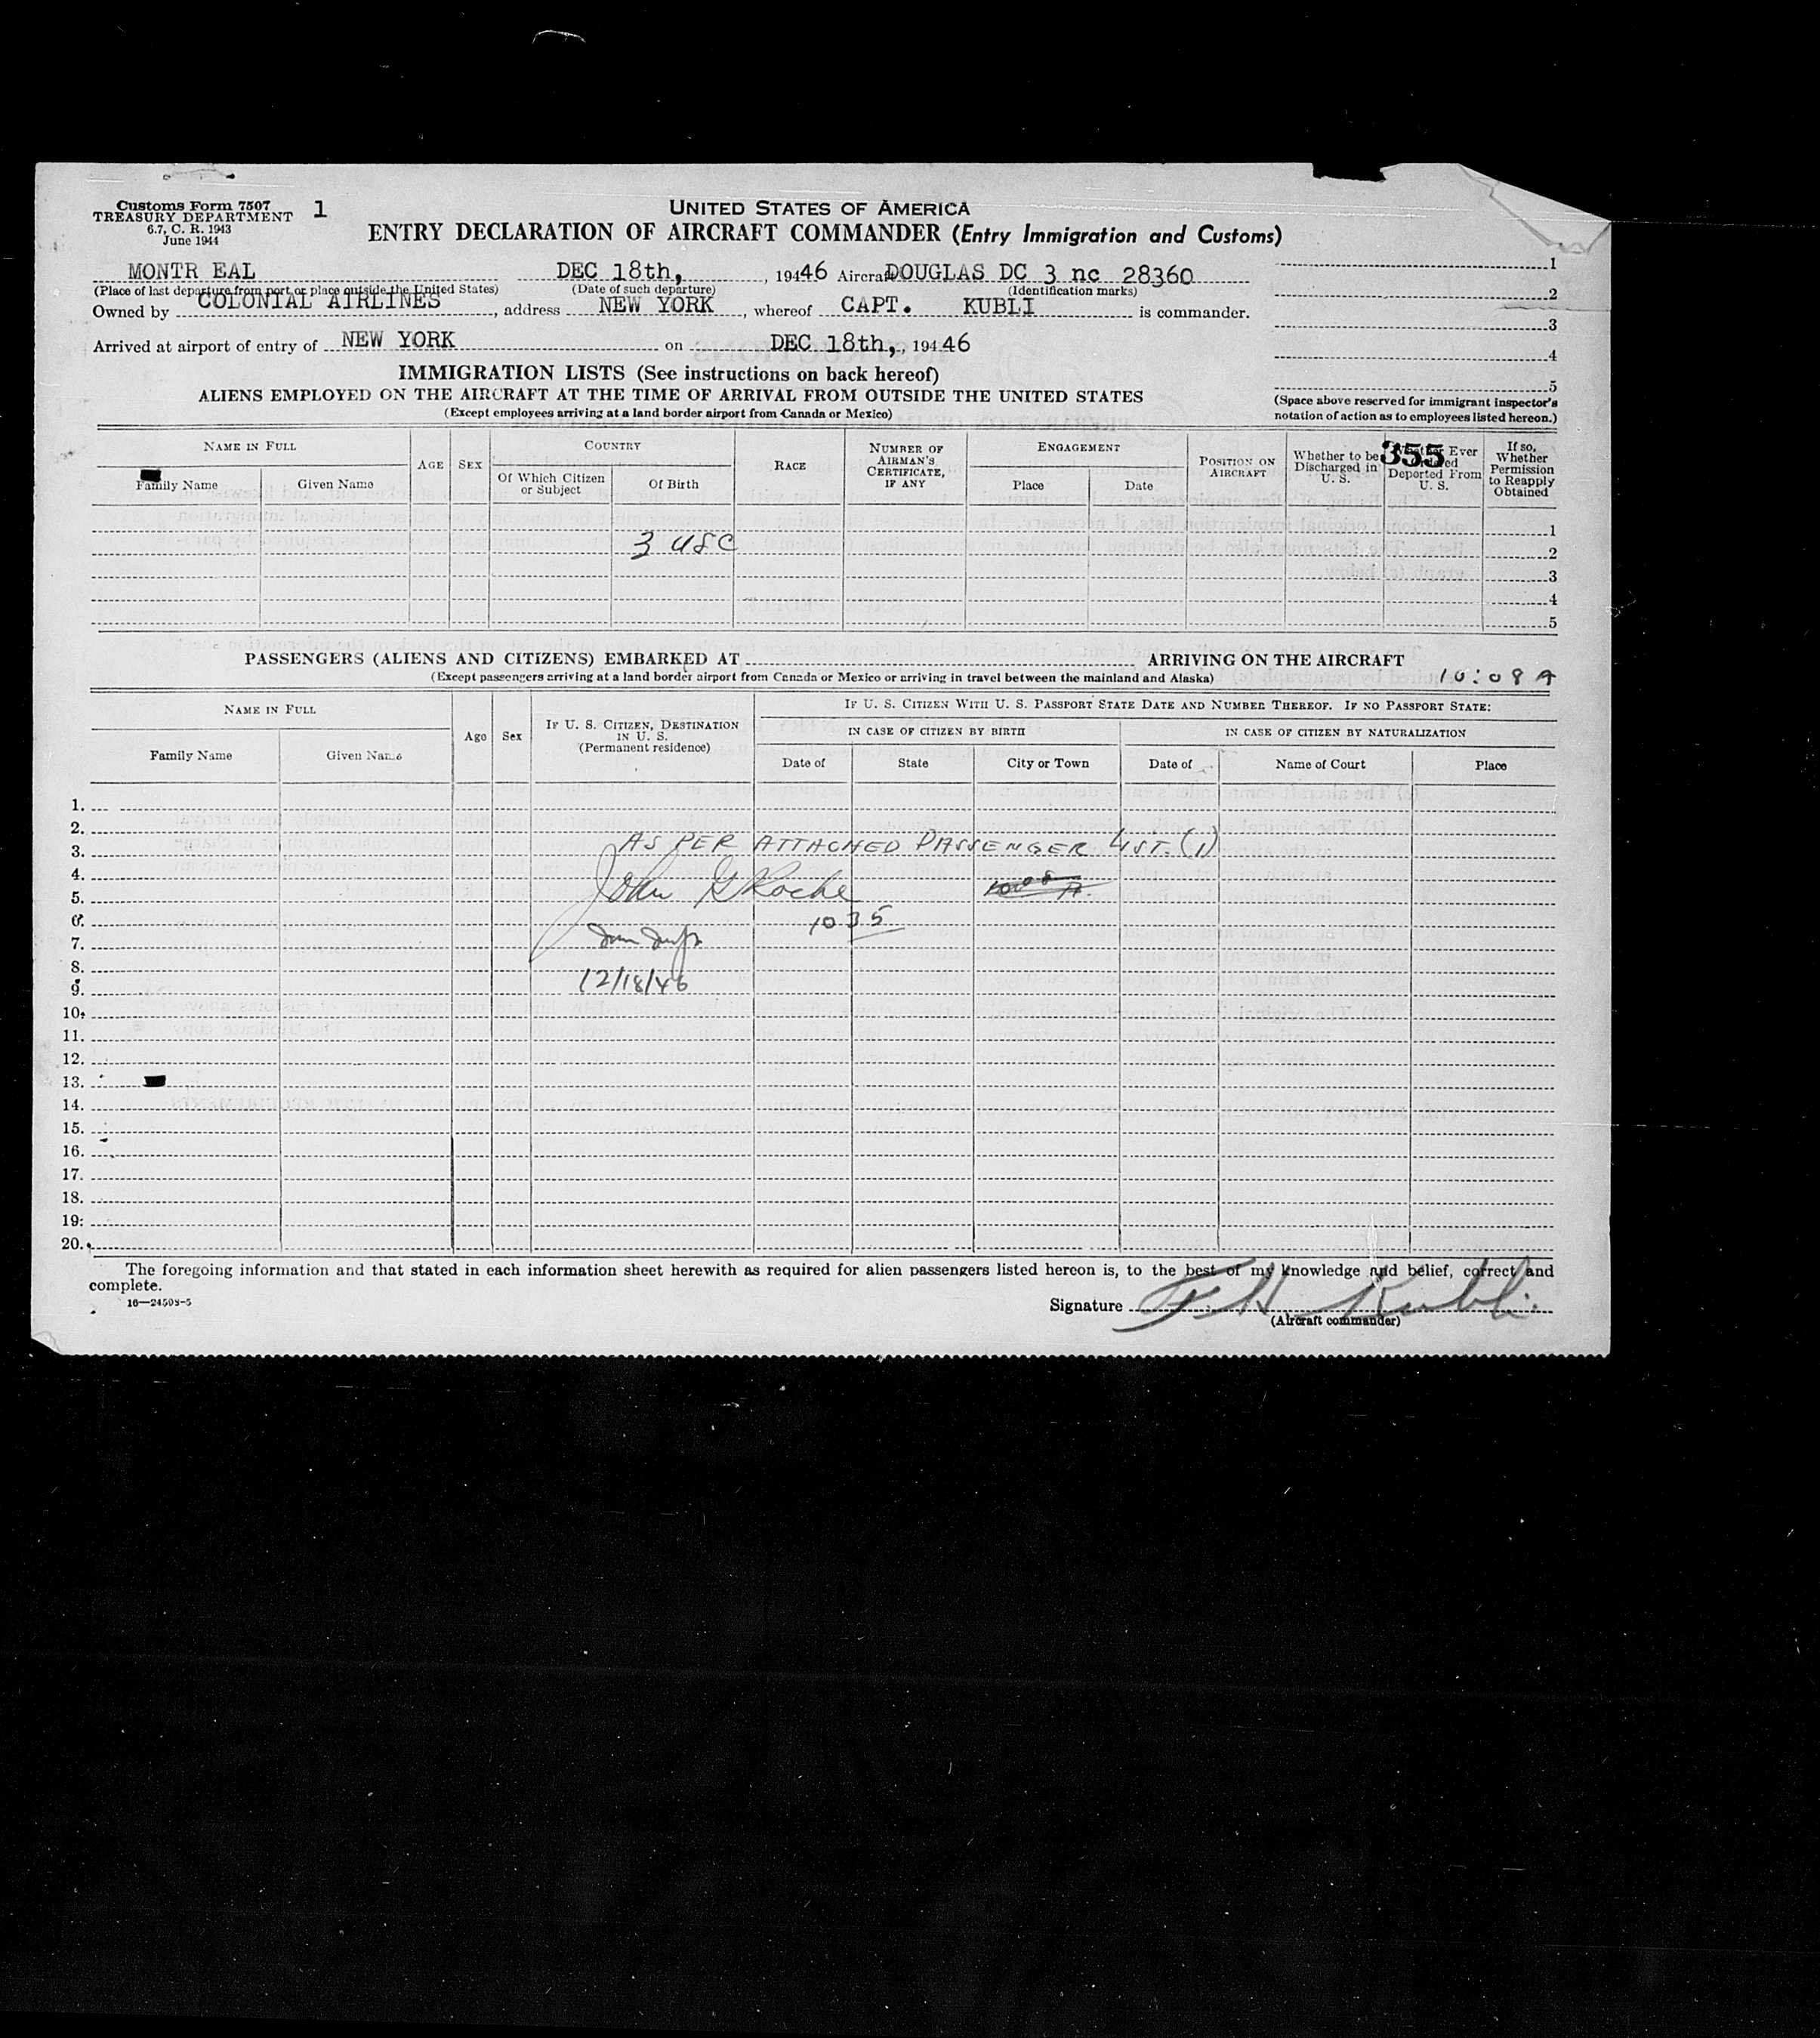 Customs Form 7507
TREASURY DEPARTMENT
6.7, C. R. 1943
June 1944
1
UNITED STATES OF AMERICA
ENTRY DECLARATION OF AIRCRAFT COMMANDER (Entry Immigration and Customs)
MONTR EAL DEC 18th, , 19446 Aircraft DOUGLAS DC 3 nc 28360
(Place of last departure from port or place outside the United States) (Date of such departure) (Identification marks)
Owned by COLONIAL AIRLINES, address NEW YORK, whereof CAPT. KUBLI is commander.
Arrived at airport of entry of NEW YORK on DEC 18th, , 19446
1
2
3
4
5
(Space above reserved for immigrant inspector's
notation of action as to employees listed hereon.)
IMMIGRATION LISTS (See instructions on back hereof)
ALIENS EMPLOYED ON THE AIRCRAFT AT THE TIME OF ARRIVAL FROM OUTSIDE THE UNITED STATES
(Except employees arriving at a land border airport from Canada or Mexico)
355
NAME IN FULL AGE SEX COUNTRY RACE NUMBER OF AIRMAN'S CERTIFICATE, IF ANY ENGAGEMENT POSITION ON AIRCRAFT Whether to be Discharged in U. S. Whether Ever Deported From U. S. If so, Whether Permission to Reapply Obtained
Family Name Given Name Of Which Citizen or Subject Of Birth Place Date
1
3 USC 2
3
4
5
PASSENGERS (ALIENS AND CITIZENS) EMBARKED AT ARRIVING ON THE AIRCRAFT
(Except passengers arriving at a land border airport from Canada or Mexico or arriving in travel between the mainland and Alaska) 10:08 A
NAME IN FULL Age Sex IF U. S. CITIZEN, DESTINATION IN U. S. (Permanent residence) IF U. S. CITIZEN WITH U. S. PASSPORT STATE DATE AND NUMBER THEREOF. IF NO PASSPORT STATE:
IN CASE OF CITIZEN BY BIRTH IN CASE OF CITIZEN BY NATURALIZATION
Family Name Given Name Date of State City or Town Date of Name of Court Place
1.
2.
3. AS PER ATTACHED PASSENGER LIST. (1)
4.
5. John G Roche
6. 1035
7.
8.
9. 12/18/46
10.
11.
12.
13.
14.
15.
16.
17.
18.
19.
20.
The foregoing information and that stated in each information sheet herewith as required for alien passengers listed hereon is, to the best of my knowledge and belief, correct and
complete.
16—24508-5
Signature F H Kubli
(Aircraft commander)